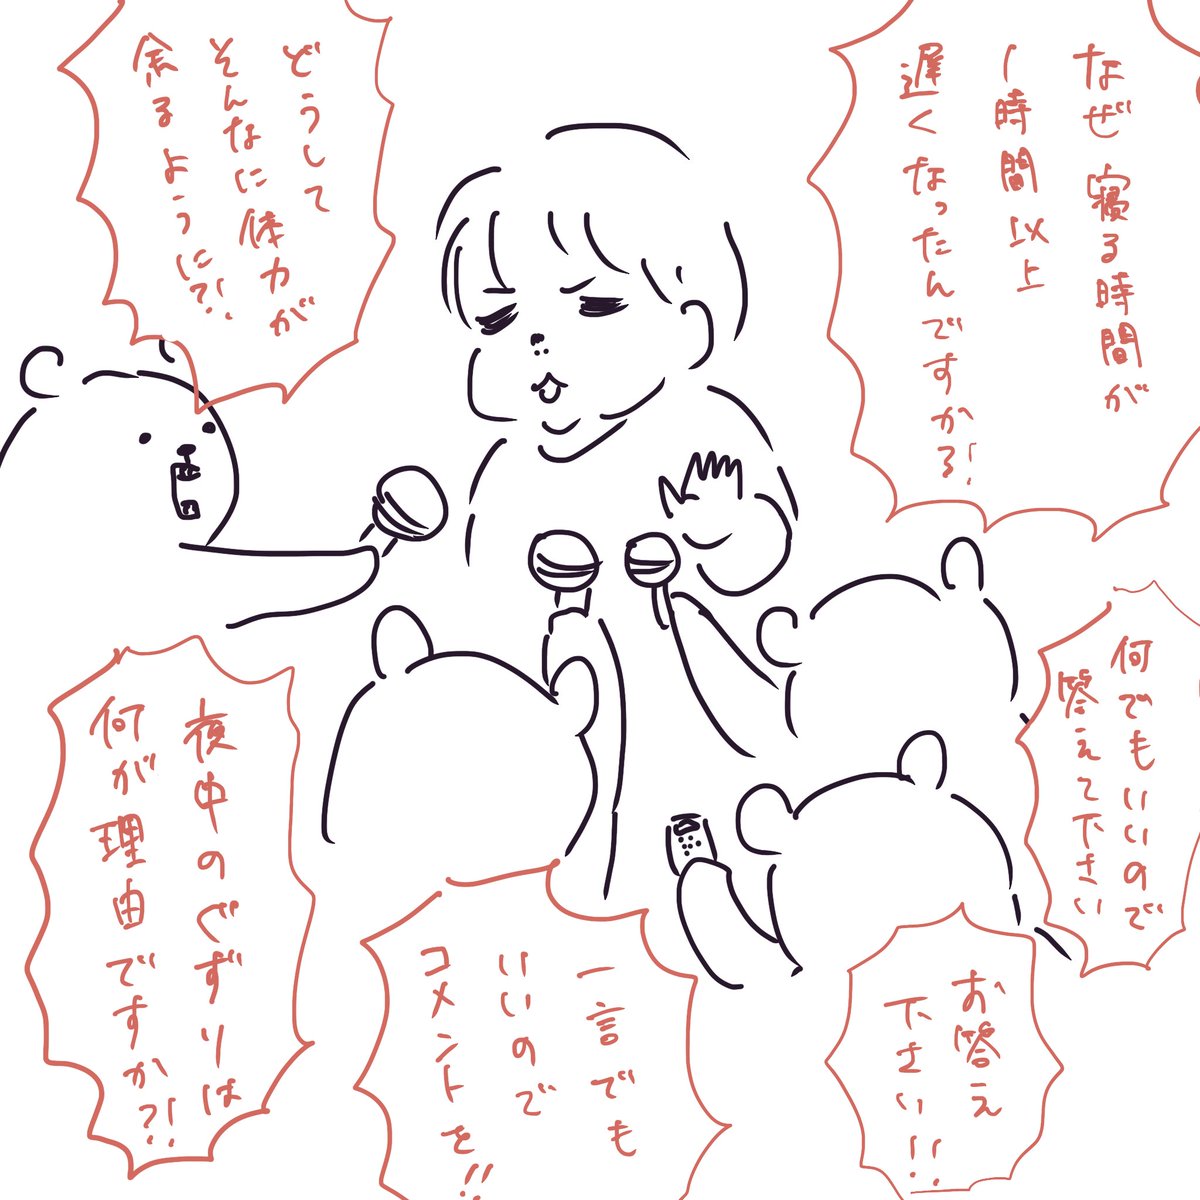 なぜ寝る時間が
1時間以上
遅くなったんですかる!
どうして
そんなに体力が
余るように?!
何でもいいので
答えて下さい
夜中のぐずりは
何が理由ですか?!
一言でも
いいので
コメントを!!
お答え
下さい!!